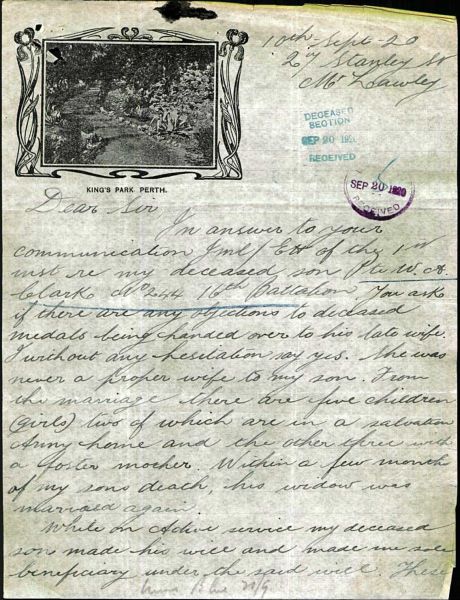 10th Sept - 20
27 Stanley St
Mt Lawley
DECEASED
SECTION
SEP 20 1920
RECEIVED
SEP 20 1920
RECEIVED
KING'S PARK PERTH.
Dear Sir
In answer to your
communication of the
inst re my deceased son Pte W. A.
Clark No 244 16th Battalion You ask
if there are any objections to deceased
medals being handed over to his late wife.
I without any hesitation say yes. She was
never a proper wife to my son. From
the marriage there are five children
(girls) two of which are in a salvation
Army home and the other three with
a foster mother. Within a few month
of my sons death, his widow was
married again
While on Active service my deceased
son made his will and made me sole
beneficiary under the said will. These